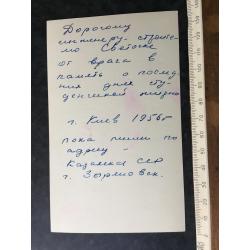 Дорогому
инженеру-строите-
лю Светочке
от врача в
память о послед-
них днях сту-
денческой жизни
г. Киев 1956г
пока пиши по
адресу -
Казахская ССР
г. Зыряновск.